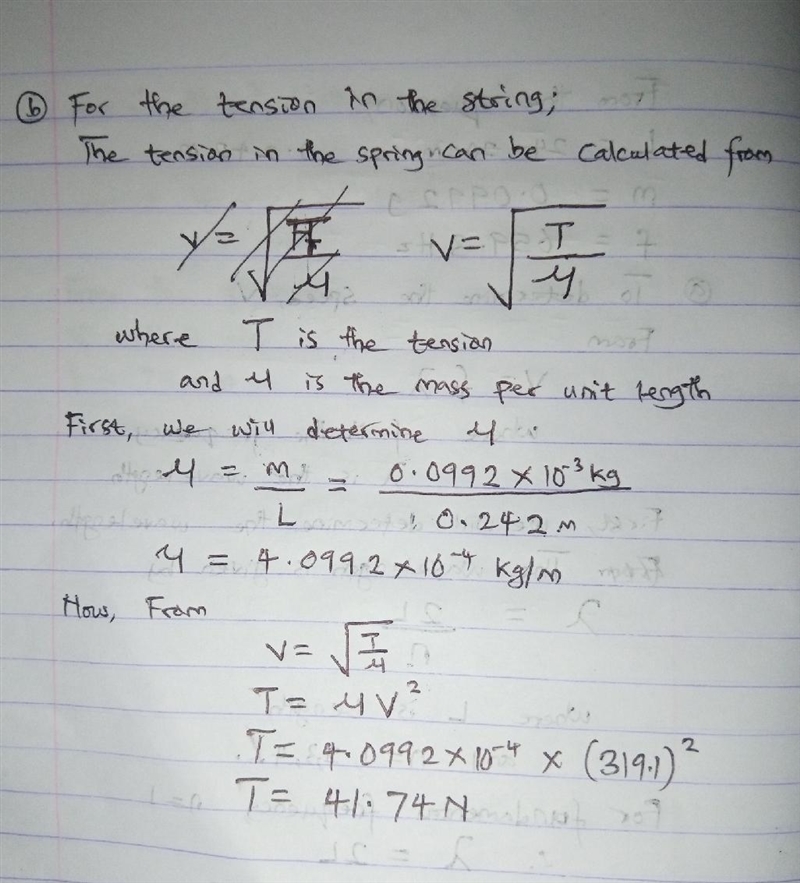 (b) For the tension in the string;
The tension in the spring can be calculated from
V = √(T/μ) V = √(T/μ)
where T is the tension
and μ is the mass per unit length
First, we will determine μ.
μ = m/L = 0.0992 × 10⁻³ kg / 0.242 m
μ = 4.0992 × 10⁻⁴ kg/m
Now, From
V = √(T/μ)
T = μV²
T = 4.0992 × 10⁻⁴ × (319.1)²
T = 41.74 N